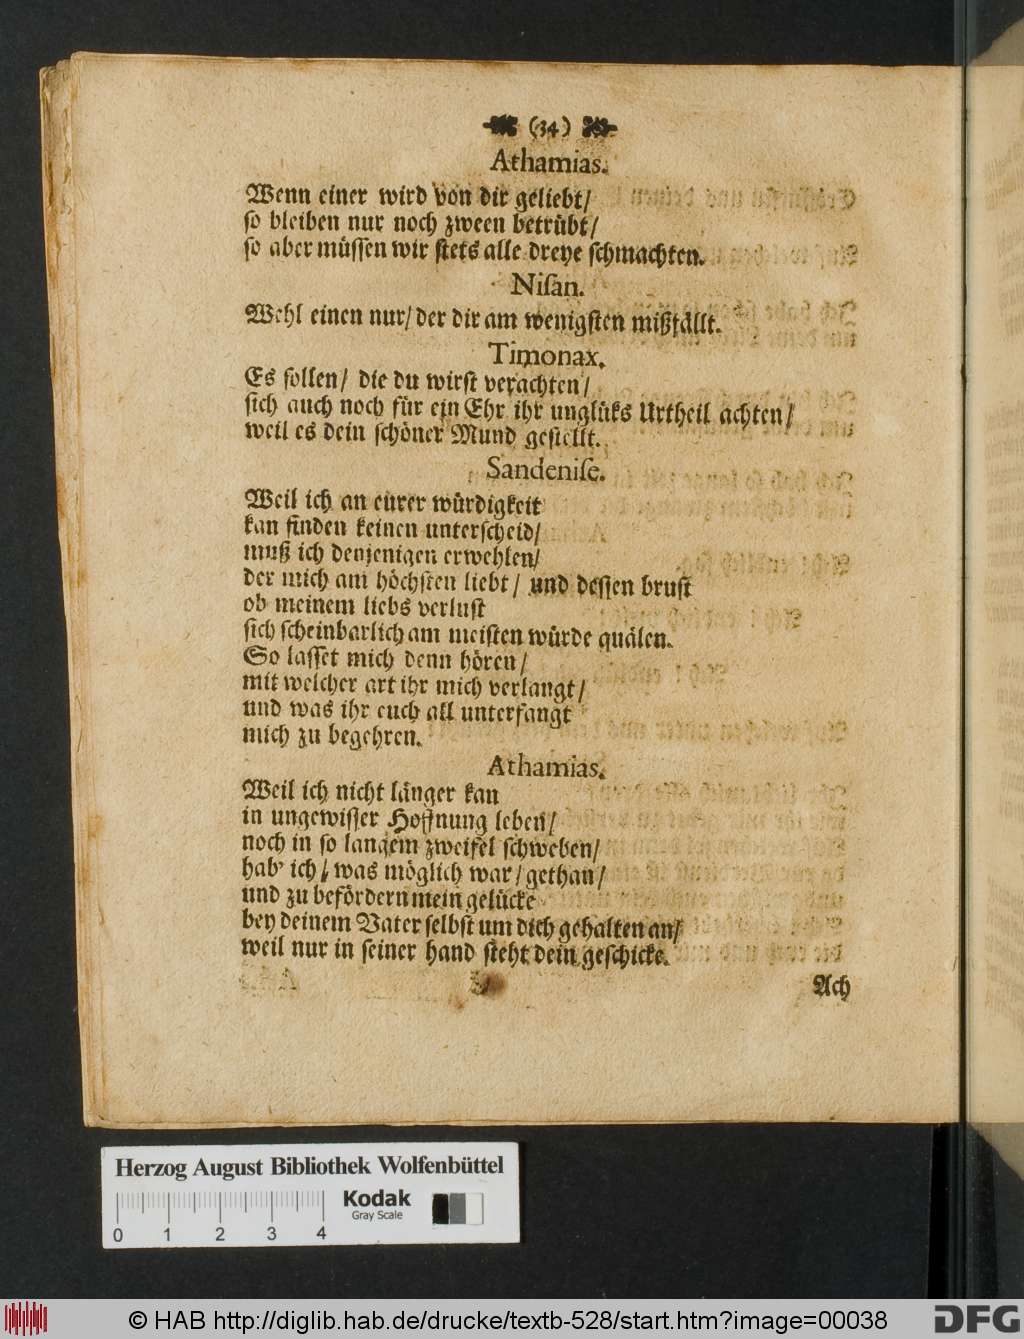 (34)
Athamias.
Wenn einer wird von dir geliebt/
so bleiben nur noch zween betrübt/
so aber müssen wir stets alle dreye schmachten.
Nisan.
Wehl einen nur/ der dir am wenigsten mißfällt.
Timonax.
Es sollen/ die du wirst verachten/
sich auch noch für ein Ehr ihr unglüks Urtheil achten/
weil es dein schöner Mund gestellt.
Sandenise.
Weil ich an eurer würdigkeit
kan finden keinen unterscheid/
muß ich denjenigen erwehlen/
der mich am höchsten liebt/ und dessen brust
ob meinem liebs verlust
sich scheinbarlich am meisten würde quälen.
So lasset mich denn hören/
mit welcher art ihr mich verlangt/
und was ihr euch all unterfangt
mich zu begehren.
Athamias.
Weil ich nicht länger kan
in ungewisser Hoffnung leben/
noch in so langem zweifel schweben/
hab' ich/ was möglich war/ gethan/
und zu befördern mein gelücke
bey deinem Vater selbst um dich gehalten an/
weil nur in seiner hand steht dein geschicke.
Ach
Herzog August Bibliothek Wolfenbüttel
Kodak
Gray Scale
0 1 2 3 4
© HAB http://diglib.hab.de/drucke/textb-528/start.htm?image=00038
DFG